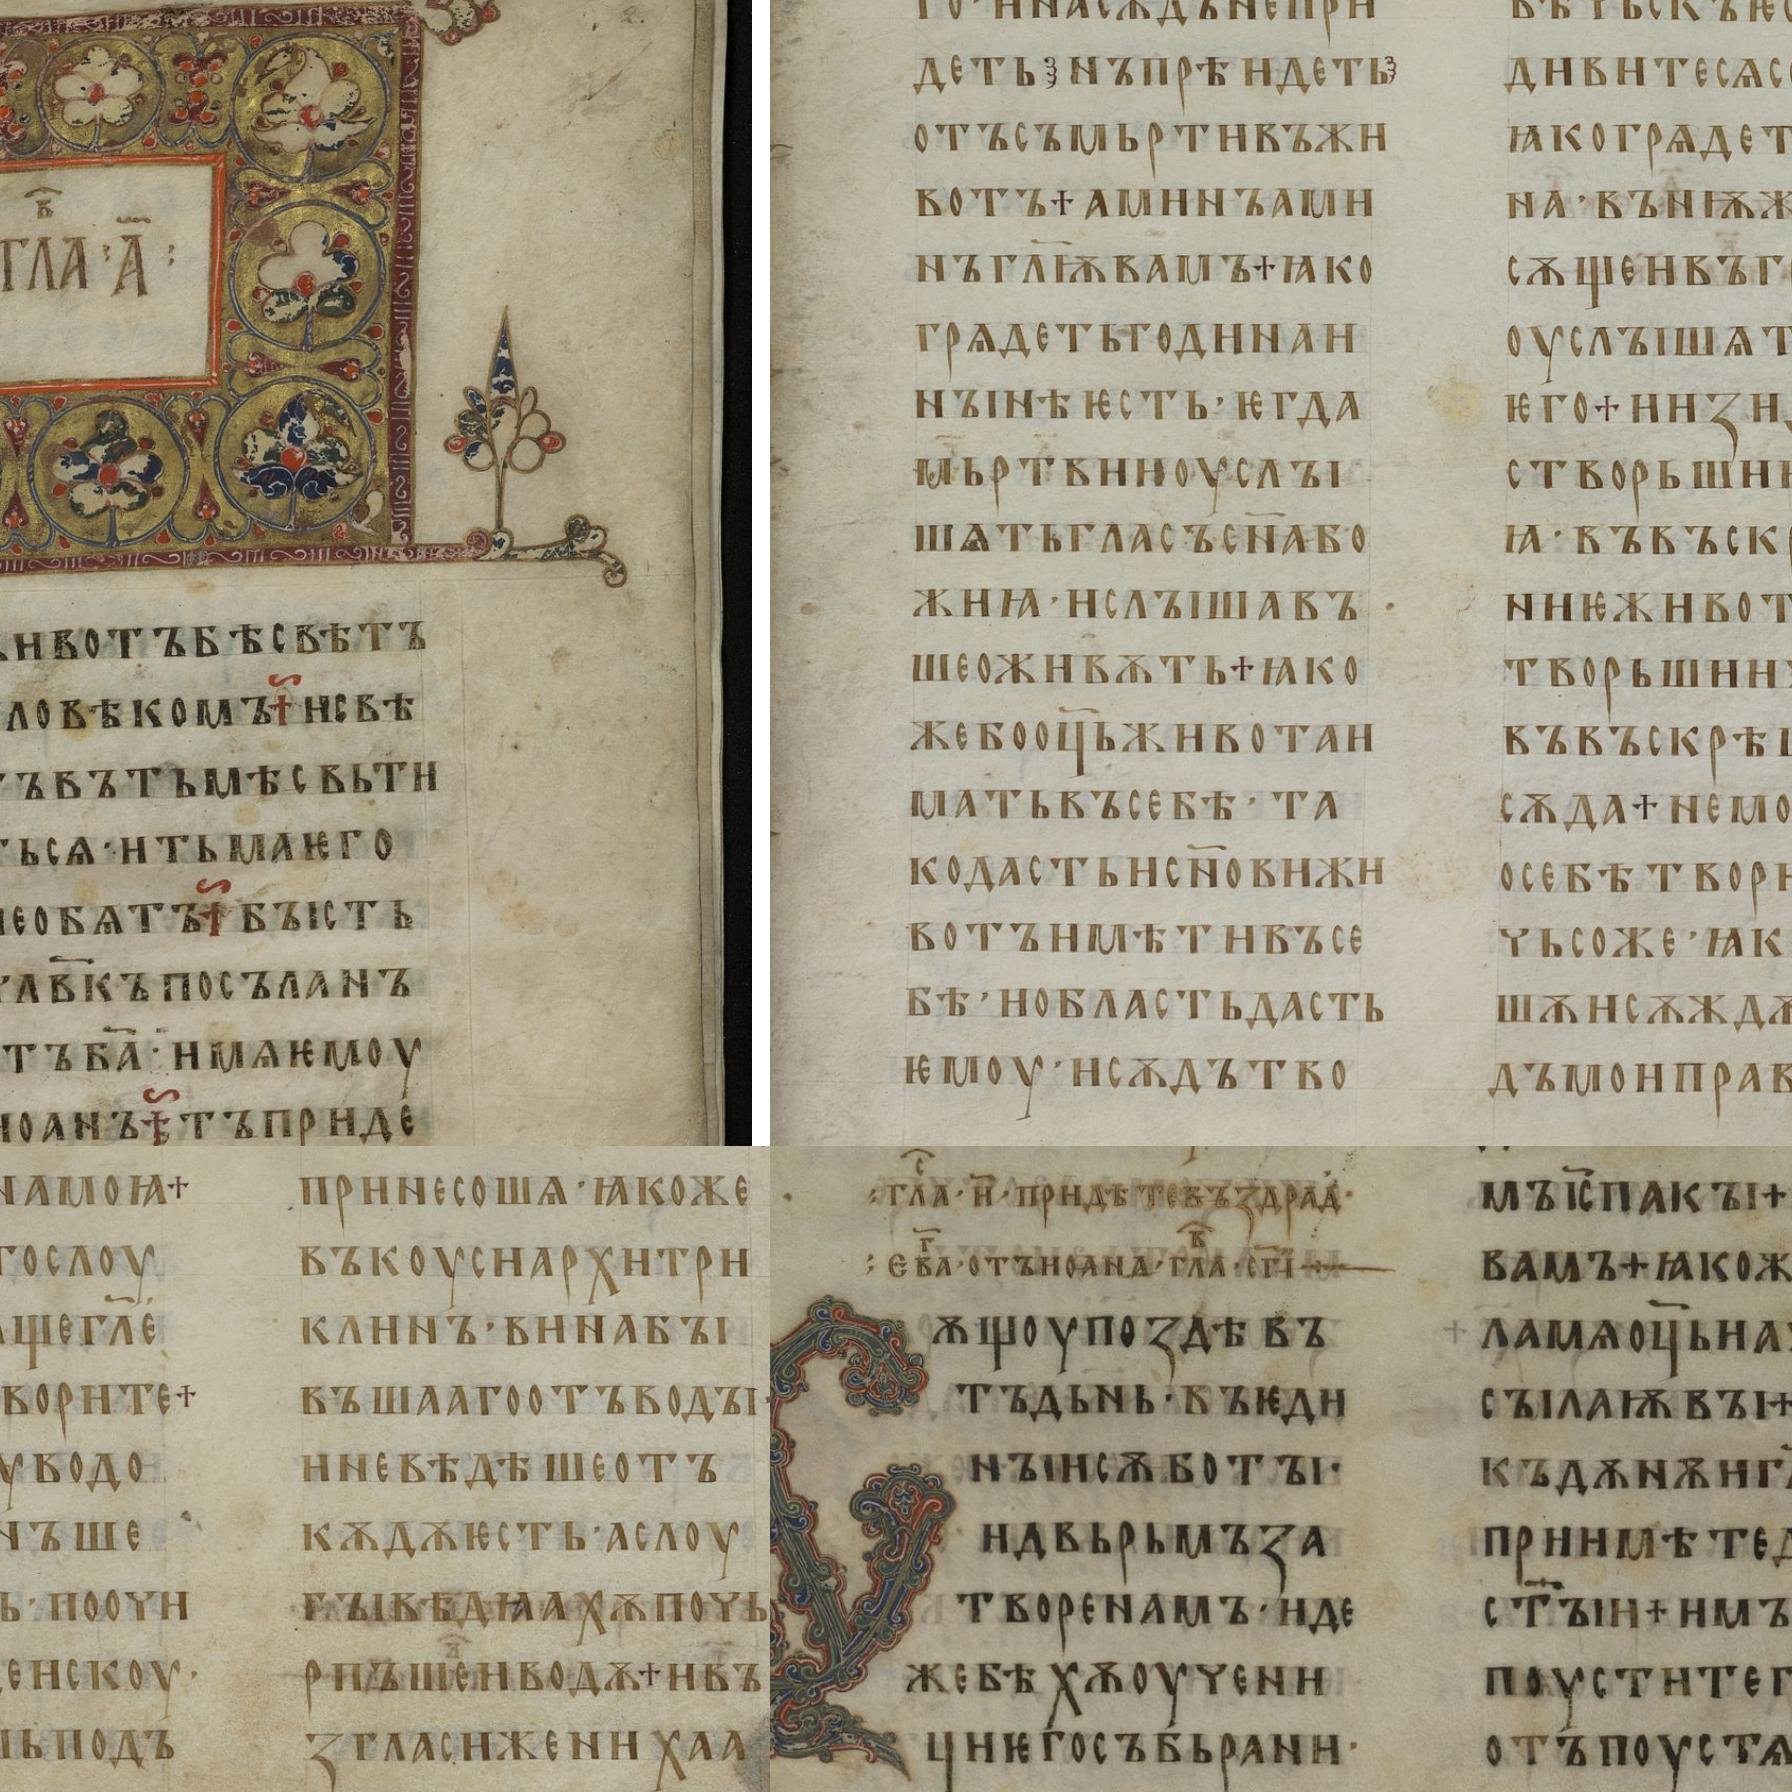 гла · а҃ ⁘
животъ бѣ свѣтъ
ловѣкомъ и свѣ
ъвътьмѣсвьти
ться · итьмаѥго
необѧтъ бъисть
чл҃вкъпосъланъ
тъба҃ · имѧѥмоу
иоанъ тъприде
го · инасѫдънепри
деть нъпрѣидеть
отъсъмьртивъжи
вотъ+аминъами
нъгл҃ѭвамъ+ꙗко
грѧдетьгодинаи
нъінѣѥсть · ѥгда
мьртвииоуслъі
шѧтьгласъсн҃або
жиꙗ · ислъішавъ
шеоживѫть+ꙗко
жебооц҃ьживотаи
матьвъсебѣ · та
кодастьисн҃овижи
вотъимѣтивъсе
бѣ · иобластьдасть
ѥмоу · исѫдътво
вѣчьскъѥ
дивитесѧсе
ꙗкогрѧдет
на · въніѫж
сѫщеивъг
оуслъішѧт
ѥго+ииꙁи
створьшии
ꙗ · въвъскр
ниѥживот
творьшии
въвъскрѣш
сѫда+немо
осебѣтвори
чьсоже · ꙗк
шѫисѫждѫ
дъмоиправ
намоꙗ+
гослоу
ащегл҃е
ворите+
уводо
нъше
ь · пооучи
денскоу ·
ьподъ
принесошѧ · ꙗкоже
въкоусиархитри
клинъ · винабъі
въшаагоотъводъі ·
иневѣдѣшеотъ
кѫдѫѥсть · аслоу
гъівѣдꙗахѫпочь
рпъшеиводѫ+ивъ
ꙁгласиженихаа
: гла · и҃ · придѣтевъꙁдрад ·
: еѵ҃а · отъиоана · гла · сг҃і
ѫщоупоꙁдѣвъ
тъдьнь · въѥди
нъіисѫботъі ·
идвьрьмъꙁа
творенамъ · иде
жебѣхѫоучени
циѥгосъбьрани ·
мъіс҃пакъі+
вамъ+ꙗкож
ламѧоц҃ьна
съілаѭвъі+
къдѫнѫиг
приимѣтед
ст҃ъіи+имъ
поуститег
отъпоустѧ